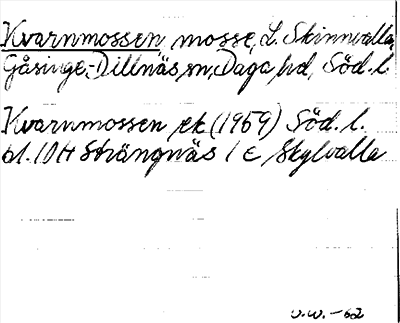 Kvarnmossen, mosse, L. Skinnvalla,
Gåsinge-Dillnäs sn, Daga hd, Söd. l.
Kvarnmossen ek (1959) Söd. l.
bl. 10H Strängnäs 1 c Skylvalla
U.W. -62